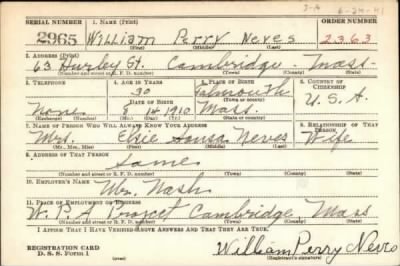 6-24-41
SERIAL NUMBER 1. NAME (Print) ORDER NUMBER
2965 William Perry Neves 2363
(First) (Middle) (Last)
2. ADDRESS (Print)
63 Hurley St. Cambridge - Mass-
(Number and street or R. F. D. number) (Town) (County) (State)
3. TELEPHONE 4. AGE IN YEARS 5. PLACE OF BIRTH 6. COUNTRY OF CITIZENSHIP
30 Falmouth
(Town or county)
DATE OF BIRTH
None 8 14 1910 Mass. U.S.A.
(Exchange) (Number) (Mo.) (Day) (Yr.) (State or country)
7. NAME OF PERSON WHO WILL ALWAYS KNOW YOUR ADDRESS 8. RELATIONSHIP OF THAT PERSON
Mrs. Elsie Sousa Neves Wife
(Mr., Mrs., Miss) (First) (Middle) (Last)
9. ADDRESS OF THAT PERSON
Same
(Number and street or R. F. D. number) (Town) (County) (State)
10. EMPLOYER'S NAME
Mr. Nash
11. PLACE OF EMPLOYMENT OR BUSINESS
W.P.A Project Cambridge Mass
(Number and street or R. F. D. number) (Town) (County) (State)
I AFFIRM THAT I HAVE VERIFIED ABOVE ANSWERS AND THAT THEY ARE TRUE.
REGISTRATION CARD
D. S. S. Form 1
William Perry Neves
(Registrant's signature)